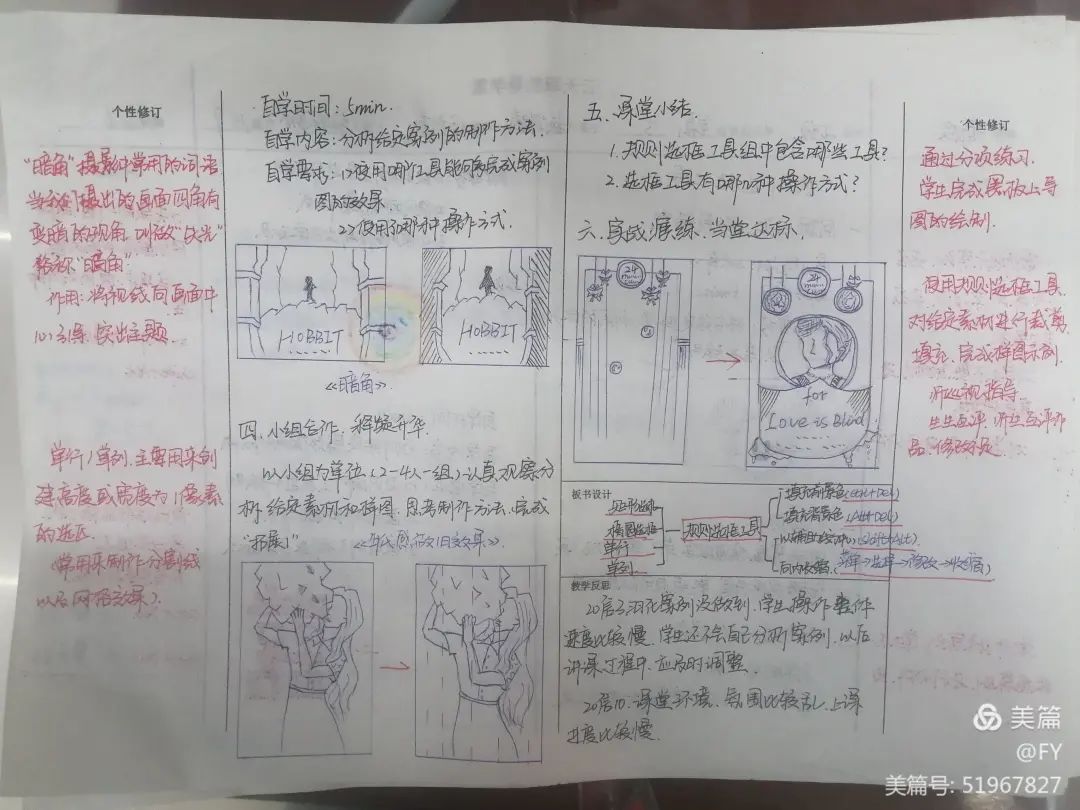 个性修订
"暗角"摄影中常用的词语
当我们摄出的画面四角有
变暗的现象,叫做"失光"
俗称"暗角"
作用:将视线向画面中
心引导,突出主题.
单行/单列.主要用来创
建高度或宽度为1像素
的选区.
(常用来制作分割线
以及网格效果).
自学时间:5min.
自学内容:分析给定案例的制作方法.
自学要求:1>使用哪个工具能够完成案例
图的效果.
2>使用了哪种操作方式.
HOBBIT
HOBBIT
《暗角》.
四.小组合作,释疑升华.
以小组为单位(2-4人一组)认真观察分
析,给定素材和样图.思考制作方法,完成
"拓展1"
《年代感做旧效果》.
五.课堂小结.
1.规则选框工具组中包含哪些工具?
2.选框工具有哪几种操作方式?
六.实战演练,当堂达标.
24
24
for
Love is Blind
板书设计
矩形选框
椭圆选框
单行
单列
规则选框工具
填充前景色(Alt+Del)
填充背景色
(Shift+Alt)
向内收缩.(菜单→选择→修改→收缩)
教学反思
20宿3.羽化案例没做到.学生操作软件
速度比较慢.学生还不会自己分析案例.以后
讲课过程中,应及时调整.
20宿10.课堂环境、氛围比较乱.上课
进度比较慢.
个性修订
通过分项练习.
学生完成黑板上导
图的绘制.
使用规则选框工具
对给定素材进行裁剪
填充.完成样图示例.
师巡视指导.
生生互评.师生互评作
品.修改不足
美篇
@FY
美篇号: 51967827